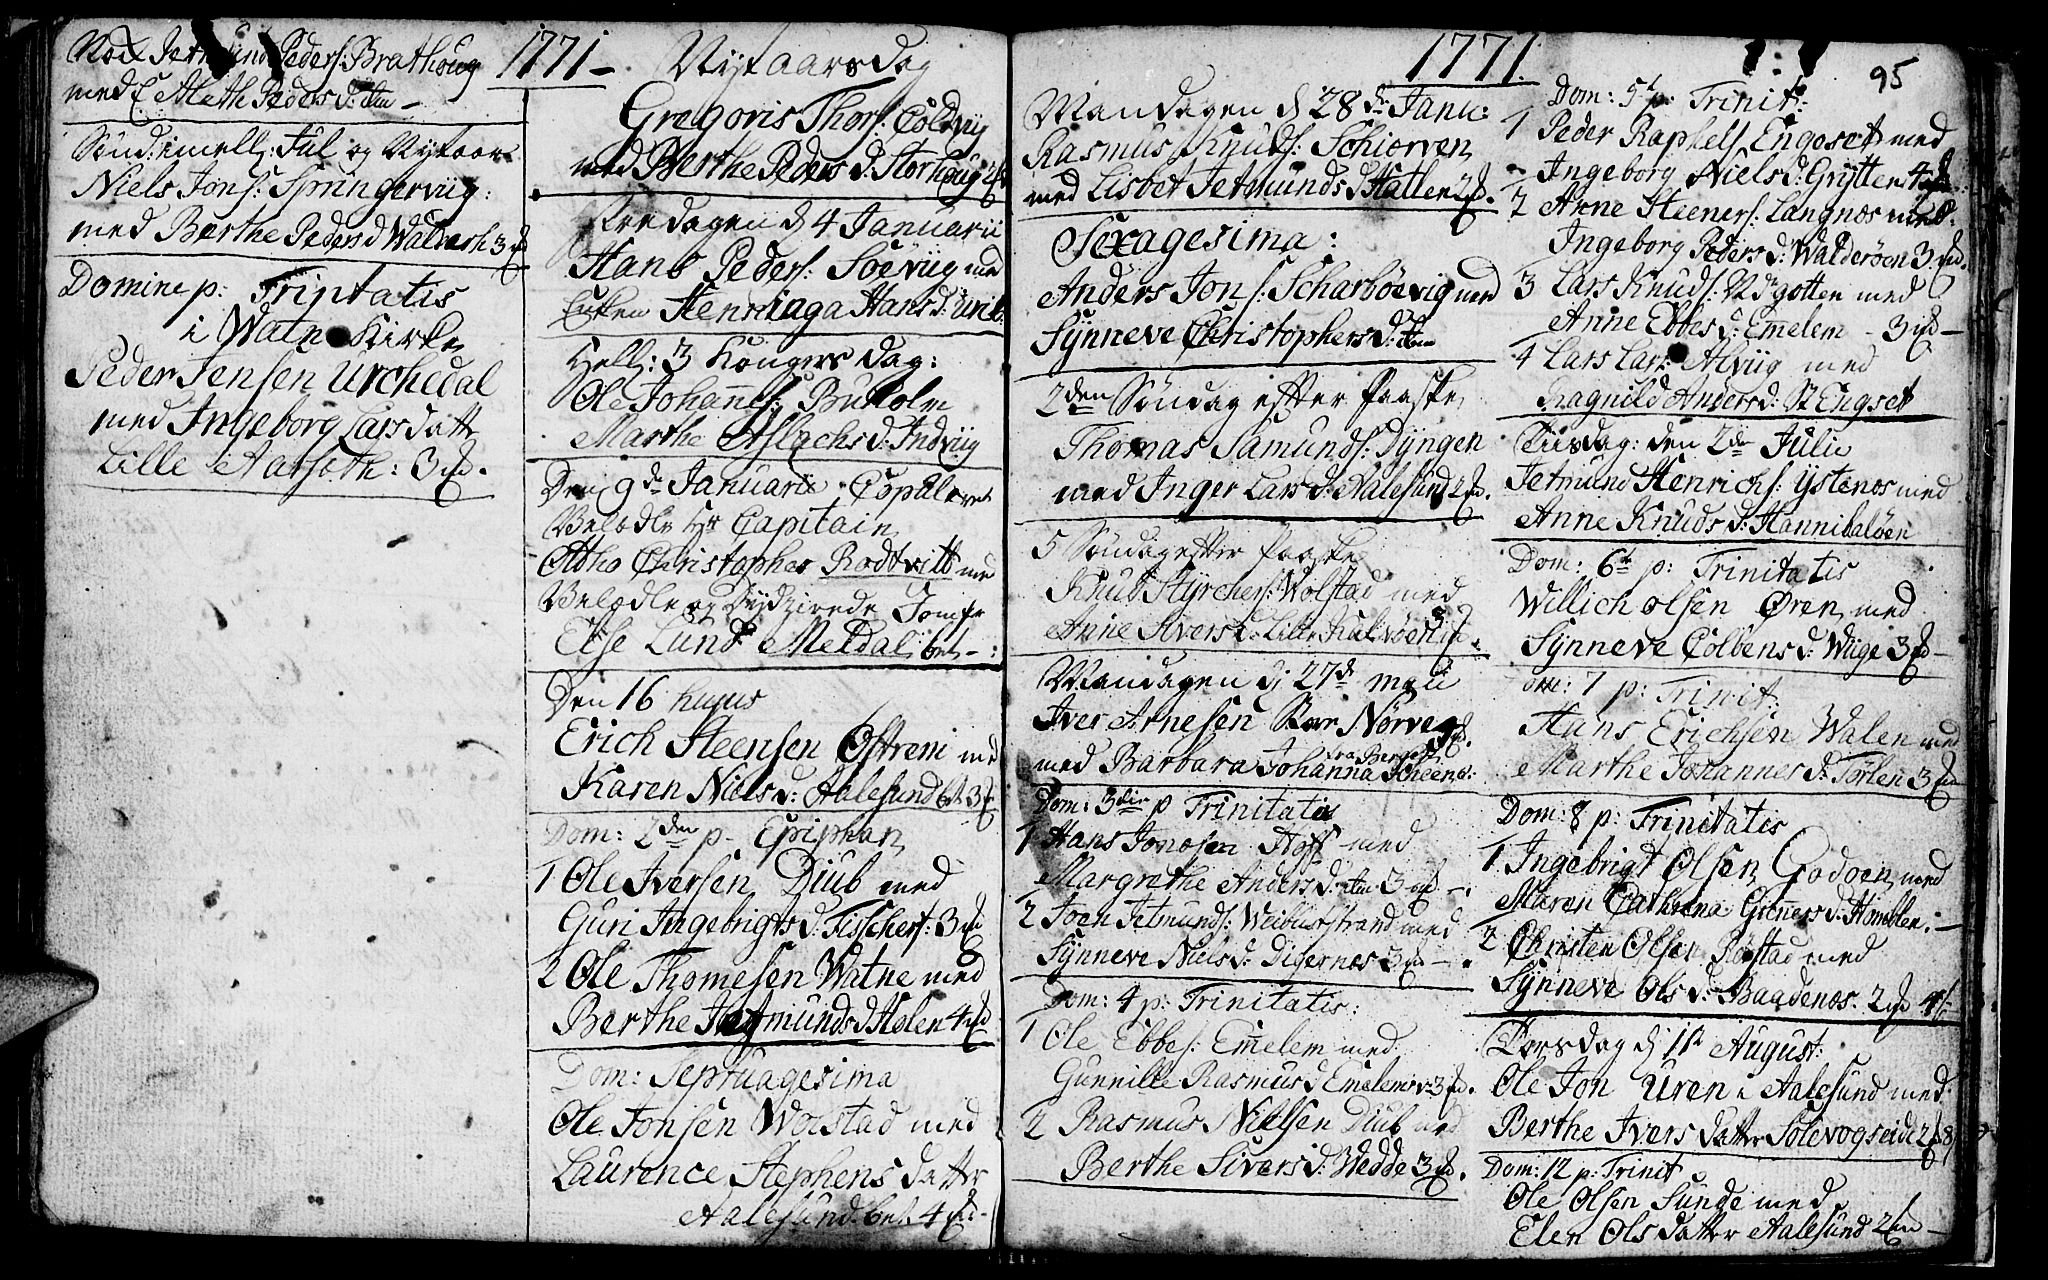 Peders: Brathoug
med Meth Peders d: itm –
Sönd: imell: Jul og Nytaar
Niels Jons: Springervüg:
med Berthe Peders d Walnesh 3
Domin p: Triptatis
i Watn Kirke
Peder Jensen Urchedal
med Ingeborg Larsdattr
Lille Aarsæth: 3
1771 – Nytaarsdag
Gregoris Thors: Coldvij
med Berthe Peders d. Storhoüg
Fredagen d 4 Januarii
Hans Peders: Söevüg med
Enken Henriaga Hans d:
Hell: 3 Konger dag:
Ole Johans: Buholm
Marthe Aslachs d: Indvüg
Den 9de Januarii Copuleret
Velædle Hr Capitain
Otho Christopher Rodtvitt med
Velædle og Dydzirede Jomfr
Else Lund Meldal, bet –:
Den 16 hujus
Erich Steensen Ostrem med
Karen Niels d: Aalesund bet 3
Dom: 2den p. Epiphan
1 Ole Iversen Diub med
Guri Ingebrigts d: Fisschers: 3
2 Ole Thomesen Watne med
Berthe Jetmunds d Holen 4
Dom: Septuagesima
Ole Jonsen Wolstad med
Laurence Stephens datter
Aalesund bet 4
1771.
95
Mandagen d 28de Janu:
Rasmus Knuds: Schiorven
med Lisbet Jetmunds d Hatlen 2
Sexagesima:
Anders Jons: Scharböevig med
Synneve Christophers d: itm
2den Söndag efter Paaske
Thomas Samunds: Dyngen
med Inger Lars d: Aalesund 2
5 Söndag efter Paaske
Knud Styrchers: Wolstad med
Anne Sivers d: Lille Kalvöen
Mandagen d 27de maii
Iver Arnesen Stor Nörveg
fra Bergen
med Barbara Johanna Scheen
Dom: 3die p Trinitatis
1 Hans Jonosen Hoff med
Margrethe Anders d: itm 3
2 Joen Jetmunds: Weibustrand med
Synneve Niels d: Digernes 3
Dom: 4 p: Trinitatis:
1 Ole Ebbes: Emelem med
Gunnille Rasmus d Emelem 3
2 Rasmus Nielsen Diub med
Berthe Sivers d: Wedde 3
Dom: 5t p: Trinit:
1 Peder Raphels Engeset med
Ingeborg Niels d: Grytten 4
2 Arne Steeners: Langnes med
Ingeborg Peders d: Walderöen 3
3 Lars Knuds: Ndgotten med
Anne Ebbes d: Emelem – 3
4 Lars Lars: Alvüg med
Ragnild Anders d: St Engset
Tiisdag: den 2de Julii
Jetmund Henrichs: Ystenes med
Anne Knuds d: Hannibalöen
Dom: 6te p: Trinitatis
Willich Olsen Ören med
Synneve Colbens d: Wiige 3
Dom: 7 p: Trinit:
Hans Erichsen Walen med
Marthe Johannes d: Törlen 3
Dom: 8 p: Trinitatis
1 Ingebrigt Olsen Godöen med
Maren Cathrina Greners d: Homblen
2 Christen Olsen Röstad med
Synneve Ols d: Baadenes. 2
Torsdag d 1t August:
Ole Jon Uren i Aalesund med
Berthe Ivers datter Solevogseide 2
Dom: 12 p: Trinit
Ole Olsen Sunde med
Elen Ols datter Aalesund 2